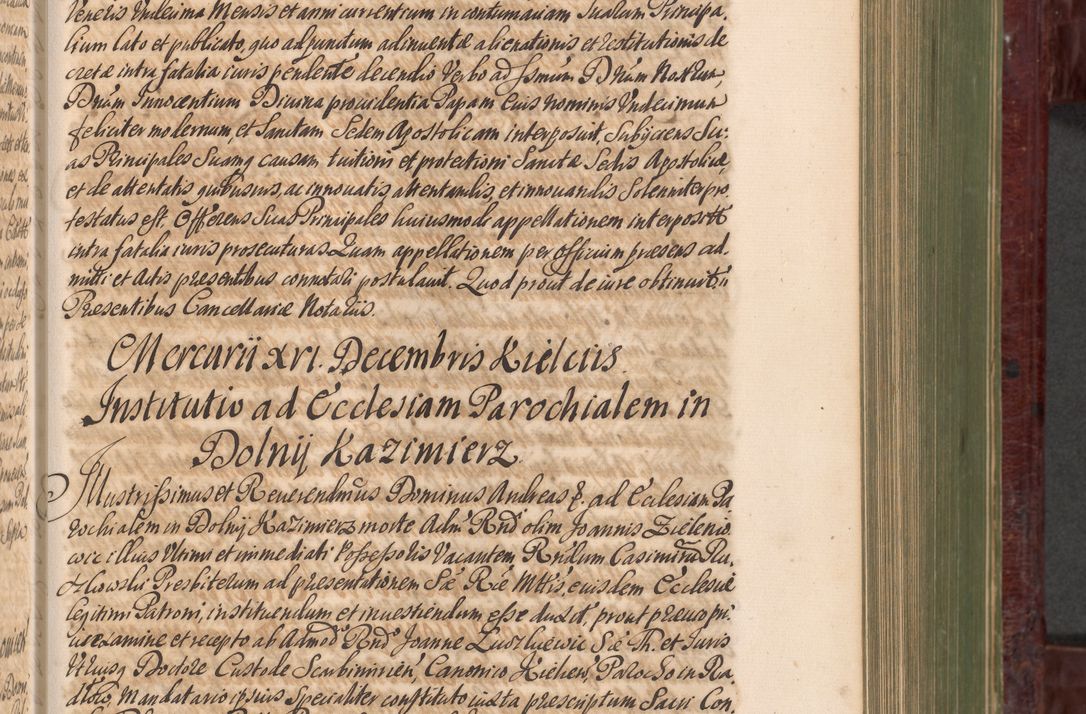 Veneris Undecima Mensis et anni currentium in contumaciam Suarum Principa-
lium lato et publicato, quo adjunctum adinventæ alienationis et restitutionis de
cretæ intra fatalia iuris pendente decendio Verbo ad Ssmum Dnum Nostrum
Dnum Innocentium Divina providentia Papam Eius nominis Undecimum
feliciter modernum, et Sanctam Sedem Apostolicam interposuit, Subijciens Su-
as Principales Suamq causam tuitioni et protectioni Sanctæ Sedis Apostolicæ
et de attentatis quibusvis, ac innovatis attentandis, et innovandis Solenniter pro
testatus est, Offerens Suas Principales huiusmodi appellationem interpositã
intra fatalia iuris prosecuturas. Quam appellationem per officium præsens ad-
mitti et Actis præsentibus connotari postulavit. Quod prout de iure obtinuit
Præsentibus Cancellariæ Notariis.
Mercurii XVI. Decembris Kielciis.
Institutio ad Ecclesiam Parochialem in
Dolnij Kazimierz.
Illustrissimus et Reverendmus Dominus Andreas &. ad Ecclesiam Pa
rochialem in Dolnij Kazimierz morte Admi Rndi olim Joannis Zielenie
wic illius Ultimi et immediati Possessoris Vacantem Rndum Casimirum Ra-
Presbiterum ad præsentationem Sæ Ræ Mttis, eiusdem Ecclesiæ
legitimi Patroni, instituendum et investiendum esse duxit, prout prævio pri
us examine et recepto ab Admod Rndo Joanne Sæ Th. et Juris
Utriusq Doctore Custode Scarbimirien, Canonico Kielcen, Parocho in Ra
Mandatario ipsius Specialiter constituto iuxta præscriptum Sacri Con-